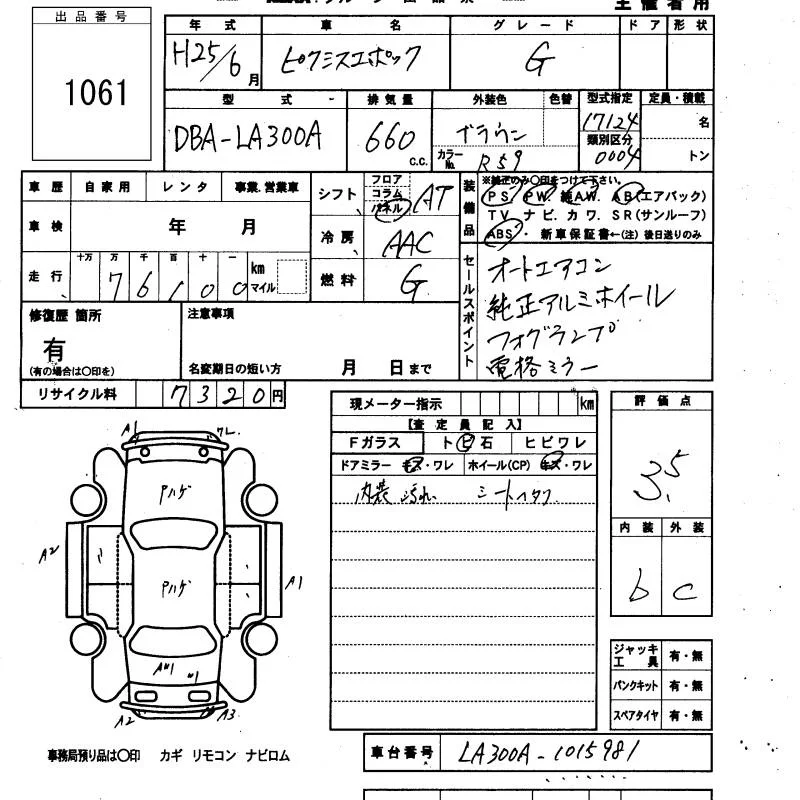 主催者用
出品番号
1061
年式 車名 グレード ドア 形状
H25/6月 ピクシスエポック G
型式 排気量 外装色 色替 型式指定 定員・積載
DBA-LA300A 660 c.c. ブラウン 17124 名
カラーNo. R59 類別区分 0004 トン
車歴 自家用 レンタ 事業.営業車
車検 年 月
走行 十万 万 千 百 十 一
76100 km マイル
シフト フロア コラム パネル AT
冷房 AAC
燃料 G
装備品
※純正のみ〇印をつけて下さい。
PS. PW. 純AW. AB(エアバック)
TV ナビ. カワ. SR(サンルーフ)
ABS・ 新車保証書←(注) 後日送りのみ
セールスポイント
オートエアコン
純正アルミホイール
フォグランプ
電格ミラー
修復歴 箇所
有
(有の場合は〇印を)
注意事項
名変期日の短い方 月 日まで
リサイクル料 7320円
現メーター指示 km
【査定員記入】
Fガラス トビ石 ヒビワレ
ドアミラー キズ・ワレ ホイール(CP) キズ・ワレ
内装 汚れ シート
評価点
3.5
内装 外装
b c
A1
Pハゲ
A2
Pハゲ
A1
A2
A3
ジャッキ工具 有・無
パンクキット 有・無
スペアタイヤ 有・無
事務局預り品は〇印 カギ リモコン ナビロム
車台番号 LA300A-1015981